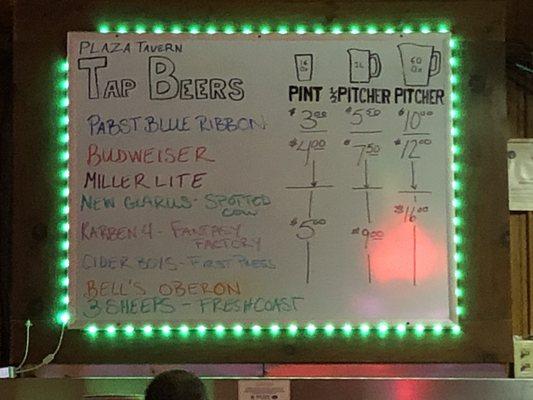 PLAZA TAVERN
TAP BEERS
16 Oz
60 Oz
PINT ½ PITCHER PITCHER
PABST BLUE RIBBON $3.00 $5.50 $10.00
BUDWEISER $4.00 $7.50 $12.00
MILLER LITE
NEW GLARUS - SPOTTED
COW $16.00
KARBEN 4 - FANTASY $5.00 $9.00
FACTORY
CIDER BOYS - FIRST PRESS
BELL'S OBERON
3 SHEEPS - FRESH COAST